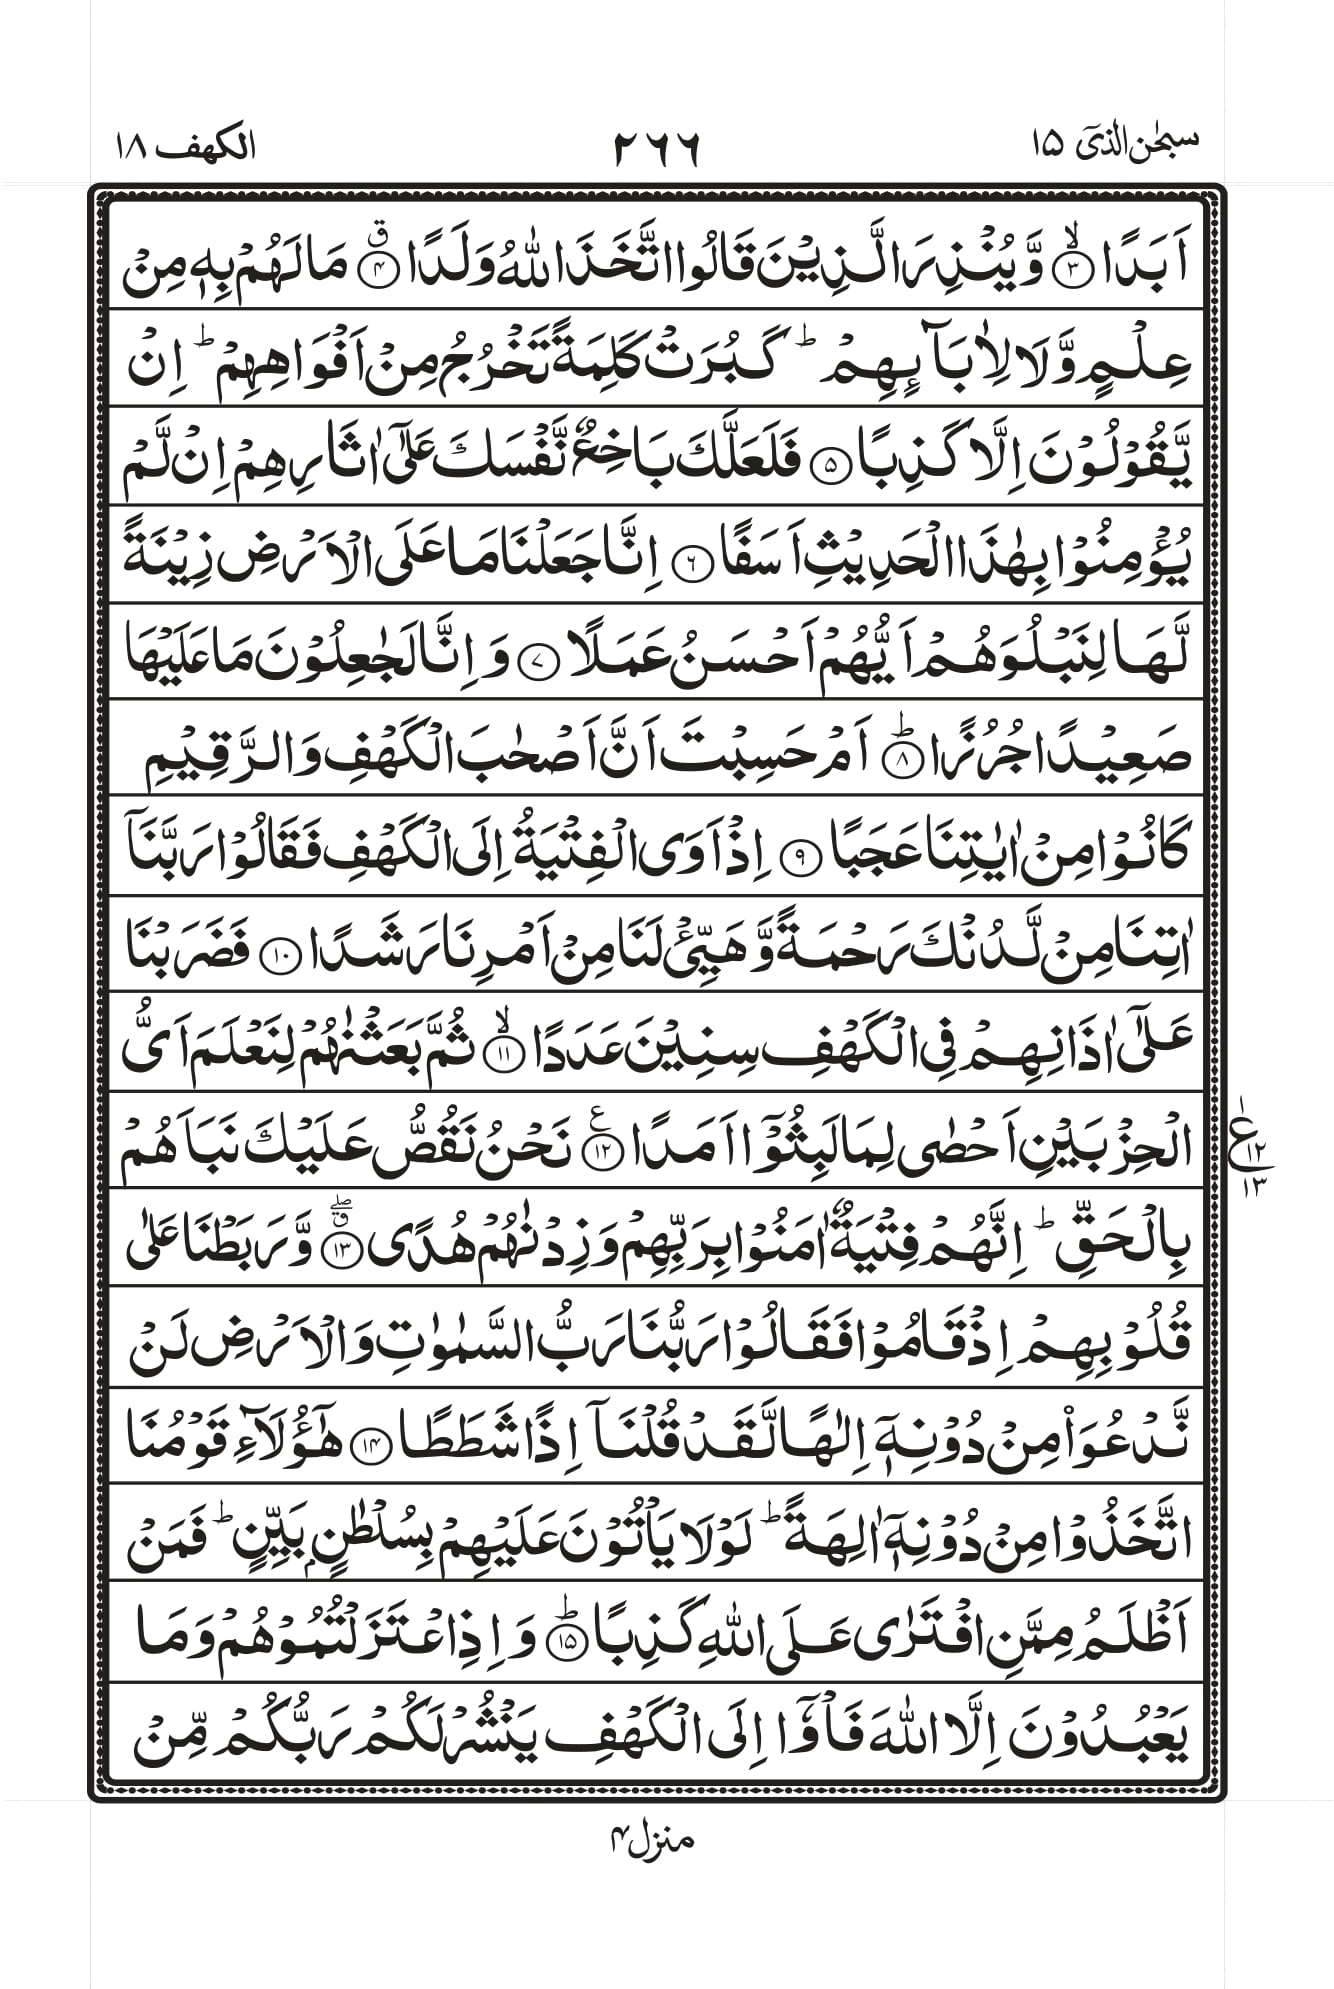 سبحٰن الذیٓ ۱۵
۲۶۶
الکهف ۱۸
اَبَدًا ۙ‏﴿۳﴾ وَّیُنْذِرَ الَّذِیْنَ قَالُوا اتَّخَذَ اللّٰهُ وَلَدًا ۗ‏﴿۴﴾ مَا لَهُمْ بِهٖ مِنْ
عِلْمٍ وَّلَا لِاٰبَآىِٕهِمْ ؕ كَبُرَتْ كَلِمَةً تَخْرُجُ مِنْ اَفْوَاهِهِمْ ؕ اِنْ
یَّقُوْلُوْنَ اِلَّا كَذِبًا ﴿۵﴾ فَلَعَلَّكَ بَاخِعٌ نَّفْسَكَ عَلٰۤی اٰثَارِهِمْ اِنْ لَّمْ
یُؤْمِنُوْا بِهٰذَا الْحَدِیْثِ اَسَفًا ﴿۶﴾ اِنَّا جَعَلْنَا مَا عَلَی الْاَرْضِ زِیْنَةً
لَّهَا لِنَبْلُوَهُمْ اَیُّهُمْ اَحْسَنُ عَمَلًا ﴿۷﴾ وَ اِنَّا لَجٰعِلُوْنَ مَا عَلَیْهَا
صَعِیْدًا جُرُزًا ؕ﴿۸﴾ اَمْ حَسِبْتَ اَنَّ اَصْحٰبَ الْكَهْفِ وَالرَّقِیْمِ
كَانُوْا مِنْ اٰیٰتِنَا عَجَبًا ﴿۹﴾ اِذْ اَوَی الْفِتْیَةُ اِلَی الْكَهْفِ فَقَالُوْا رَبَّنَاۤ
اٰتِنَا مِنْ لَّدُنْكَ رَحْمَةً وَّ هَیِّئْ لَنَا مِنْ اَمْرِنَا رَشَدًا ﴿۱۰﴾ فَضَرَبْنَا
عَلٰۤی اٰذَانِهِمْ فِی الْكَهْفِ سِنِیْنَ عَدَدًا ۙ﴿۱۱﴾ ثُمَّ بَعَثْنٰهُمْ لِنَعْلَمَ اَیُّ
الْحِزْبَیْنِ اَحْصٰی لِمَا لَبِثُوْۤا اَمَدًا ﴿۱۲﴾ ع نَحْنُ نَقُصُّ عَلَیْكَ نَبَاَهُمْ
ع ۱ ۱۲ ۱۳
بِالْحَقِّ ؕ اِنَّهُمْ فِتْیَةٌ اٰمَنُوْا بِرَبِّهِمْ وَزِدْنٰهُمْ هُدًی ۗۖ﴿۱۳﴾ وَّرَبَطْنَا عَلٰی
قُلُوْبِهِمْ اِذْ قَامُوْا فَقَالُوْا رَبُّنَا رَبُّ السَّمٰوٰتِ وَالْاَرْضِ لَنْ
نَّدْعُوَا۟ مِنْ دُوْنِهٖۤ اِلٰهًا لَّقَدْ قُلْنَاۤ اِذًا شَطَطًا ﴿۱۴﴾ هٰۤؤُلَآءِ قَوْمُنَا
اتَّخَذُوْا مِنْ دُوْنِهٖۤ اٰلِهَةً ؕ لَوْلَا یَاْتُوْنَ عَلَیْهِمْ بِسُلْطٰنٍۭ بَیِّنٍ ؕ فَمَنْ
اَظْلَمُ مِمَّنِ افْتَرٰی عَلَی اللّٰهِ كَذِبًا ؕ﴿۱۵﴾ وَ اِذِ اعْتَزَلْتُمُوْهُمْ وَمَا
یَعْبُدُوْنَ اِلَّا اللّٰهَ فَاْوٗۤا اِلَی الْكَهْفِ یَنْشُرْ لَكُمْ رَبُّكُمْ مِّنْ
منزل ۴